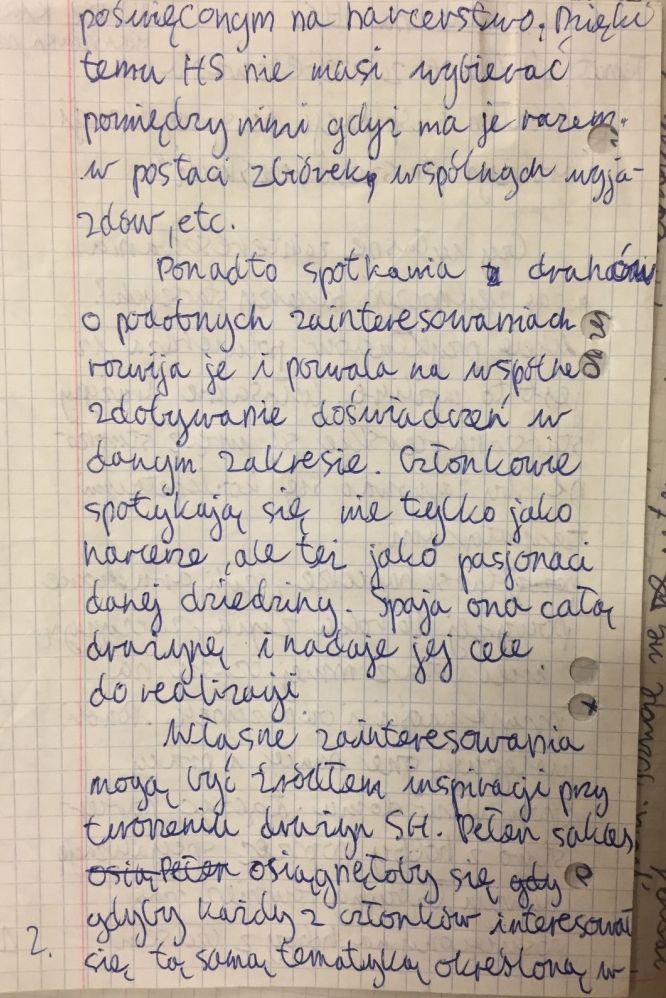 poświęconym na harcerstwo. Dzięki
temu HS nie musi wybierać
pomiędzy nimi gdyż ma je razem.
w postaci zbiórek, wspólnych wyja-
zdów, etc.
Ponadto spotkania druhów
o podobnych zainteresowaniach
rozwija je i pozwala na wspólne
zdobywanie doświadczeń w
danym zakresie. Członkowie
spotykają się nie tylko jako
harcerze, ale też jako pasjonaci
danej dziedziny. Spaja ona całą
drużynę i nadaje jej cele
do realizacji
Własne zainteresowania
mogą być źródłem inspiracji przy
tworzeniu drużyn SH. Pełen sukces
osią Pełen osiągnęłoby się gdy
gdyby każdy z członków interesował
2. się tą samą tematyką określoną w-